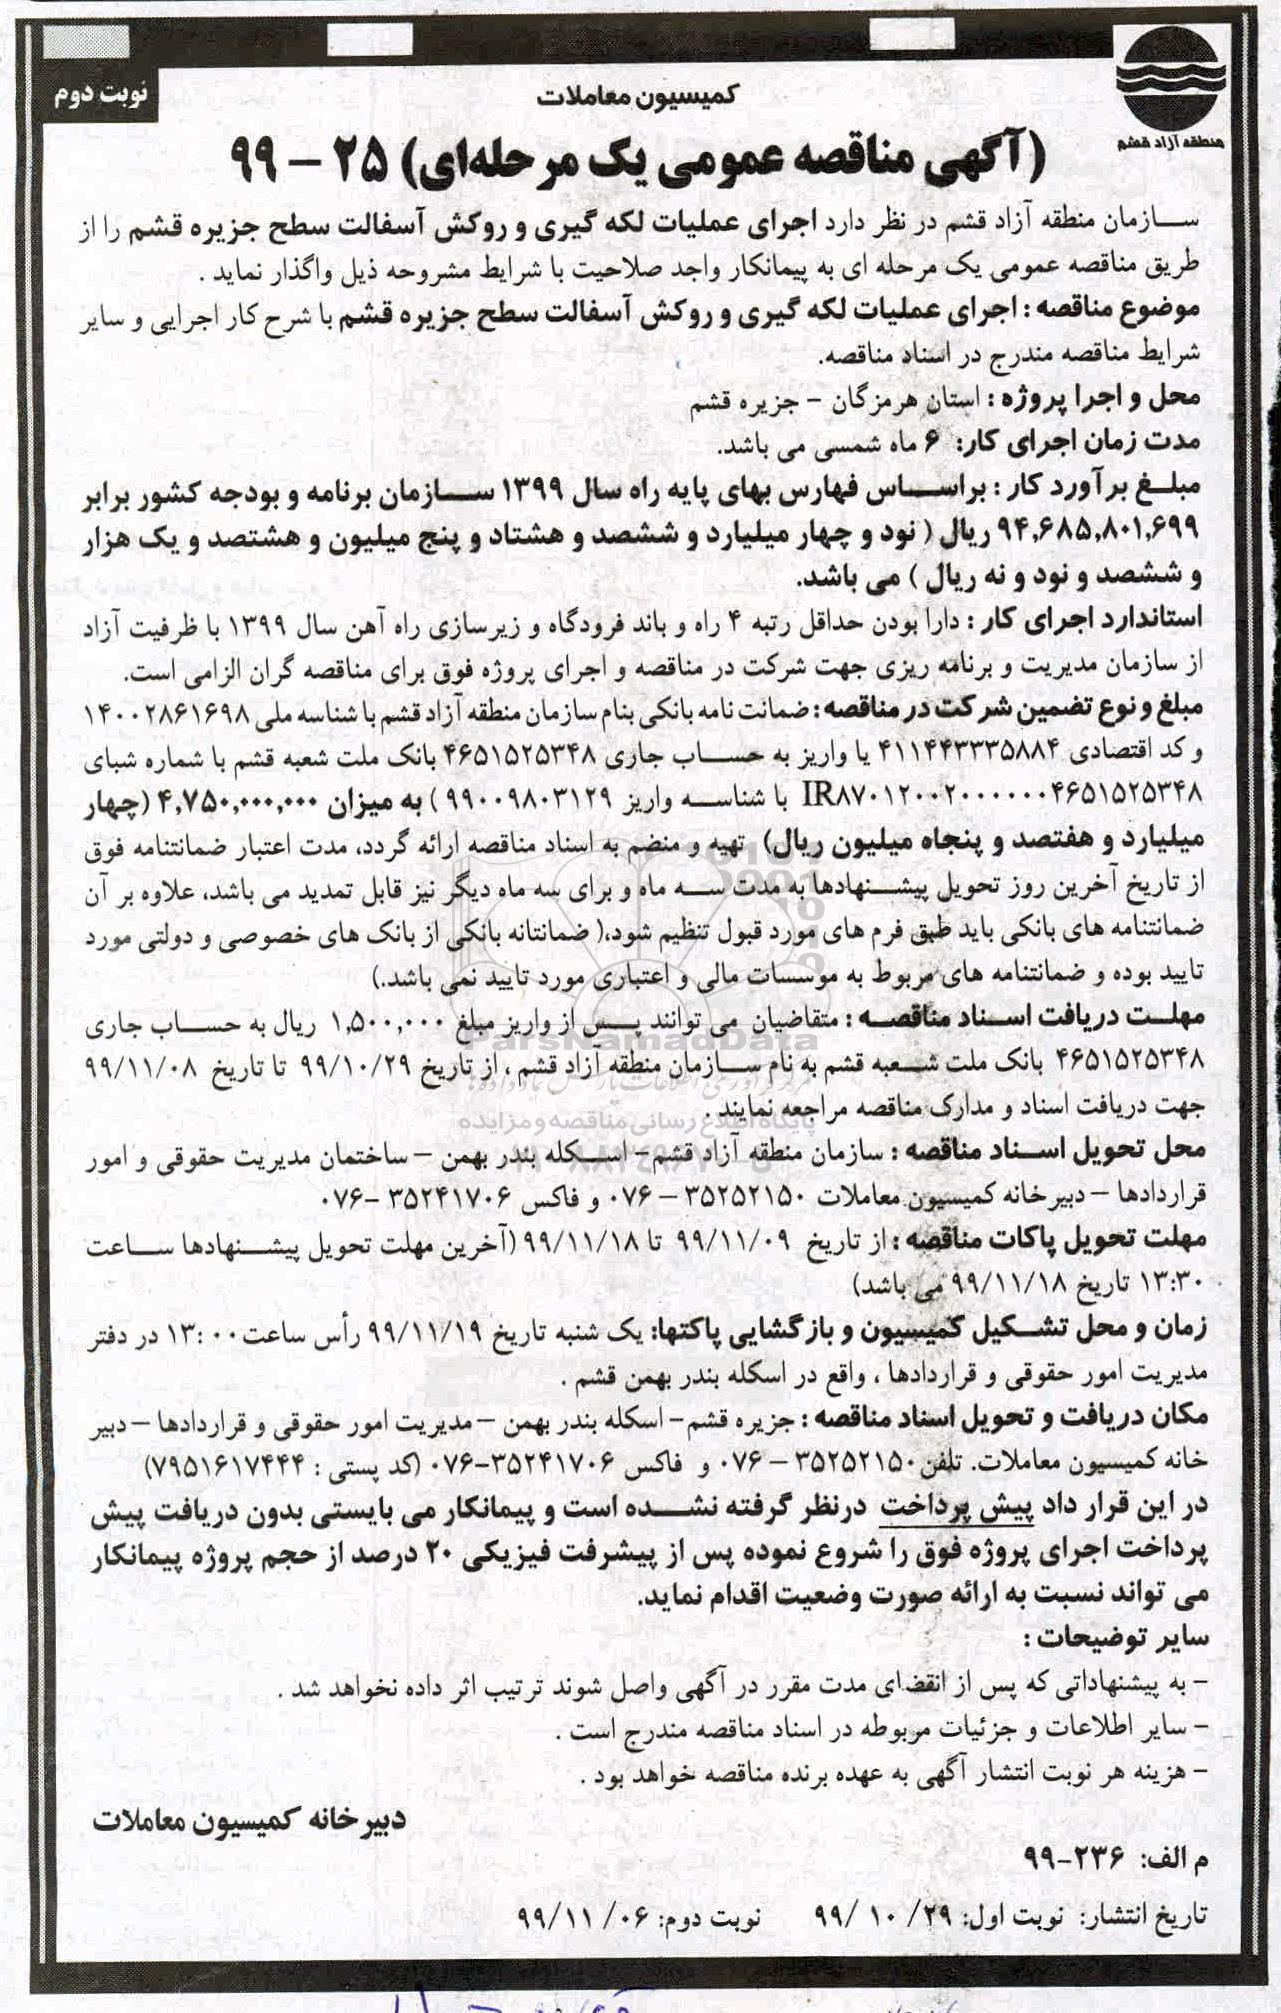 منطقه آزاد قشم
نوبت دوم
کمیسیون معاملات
(آگهی مناقصه عمومی یک مرحله‌ای) ۲۵ – ۹۹
سازمان منطقه آزاد قشم در نظر دارد اجرای عملیات لکه گیری و روکش آسفالت سطح جزیره قشم را از
طریق مناقصه عمومی یک مرحله ای به پیمانکار واجد صلاحیت با شرایط مشروحه ذیل واگذار نماید .
موضوع مناقصه : اجرای عملیات لکه گیری و روکش آسفالت سطح جزیره قشم با شرح کار اجرایی و سایر
شرایط مناقصه مندرج در اسناد مناقصه.
محل و اجرا پروژه : استان هرمزگان – جزیره قشم
مدت زمان اجرای کار: ۶ ماه شمسی می باشد.
مبلغ برآورد کار : براساس فهارس بهای پایه راه سال ۱۳۹۹ سازمان برنامه و بودجه کشور برابر
۹۴,۶۸۵,۸۰۱,۶۹۹ ریال ( نود و چهار میلیارد و ششصد و هشتاد و پنج میلیون و هشتصد و یک هزار
و ششصد و نود و نه ریال ) می باشد.
استاندارد اجرای کار : دارا بودن حداقل رتبه ۴ راه و باند فرودگاه و زیرسازی راه آهن سال ۱۳۹۹ با ظرفیت آزاد
از سازمان مدیریت و برنامه ریزی جهت شرکت در مناقصه و اجرای پروژه فوق برای مناقصه گران الزامی است.
مبلغ و نوع تضمین شرکت در مناقصه : ضمانت نامه بانکی بنام سازمان منطقه آزاد قشم با شناسه ملی ۱۴۰۰۲۸۶۱۶۹۸
و کد اقتصادی ۴۱۱۴۴۳۳۳۵۸۸۴ یا واریز به حساب جاری ۴۶۵۱۵۲۵۳۴۸ بانک ملت شعبه قشم با شماره شبای
IR۸۷۰۱۲۰۰۲۰۰۰۰۰۰۴۶۵۱۵۲۵۳۴۸ با شناسه واریز ۹۹۰۰۹۸۰۳۱۲۹ ) به میزان ۴,۷۵۰,۰۰۰,۰۰۰ (چهار
میلیارد و هفتصد و پنجاه میلیون ریال) تهیه و منضم به اسناد مناقصه ارائه گردد، مدت اعتبار ضمانتنامه فوق
از تاریخ آخرین روز تحویل پیشنهادها به مدت سه ماه و برای سه ماه دیگر نیز قابل تمدید می باشد، علاوه بر آن
ضمانتنامه های بانکی باید طبق فرم های مورد قبول تنظیم شود،( ضمانتانه بانکی از بانک های خصوصی و دولتی مورد
تایید بوده و ضمانتنامه های مربوط به موسسات مالی و اعتباری مورد تایید نمی باشد.)
مهلت دریافت اسناد مناقصه : متقاضیان می توانند پس از واریز مبلغ ۱,۵۰۰,۰۰۰ ریال به حساب جاری
ParsNamadData
۴۶۵۱۵۲۵۳۴۸ بانک ملت شعبه قشم به نام سازمان منطقه آزاد قشم ، از تاریخ ۹۹/۱۰/۲۹ تا تاریخ ۹۹/۱۱/۰۸
جهت دریافت اسناد و مدارک مناقصه مراجعه نمایند .
پایگاه اطلاع رسانی مناقصه و مزایده
محل تحویل اسناد مناقصه : سازمان منطقه آزاد قشم– اسکله بندر بهمن – ساختمان مدیریت حقوقی و امور
قراردادها – دبیرخانه کمیسیون معاملات ۳۵۲۵۲۱۵۰ – ۰۷۶ و فاکس ۳۵۲۴۱۷۰۶ –۰۷۶
مهلت تحویل پاکات مناقصه : از تاریخ ۹۹/۱۱/۰۹ تا ۹۹/۱۱/۱۸ (آخرین مهلت تحویل پیشنهادها ساعت
۱۳:۳۰ تاریخ ۹۹/۱۱/۱۸ می باشد)
زمان و محل تشکیل کمیسیون و بازگشایی پاکتها: یک شنبه تاریخ ۹۹/۱۱/۱۹ رأس ساعت ۱۳:۰۰ در دفتر
مدیریت امور حقوقی و قراردادها ، واقع در اسکله بندر بهمن قشم .
مکان دریافت و تحویل اسناد مناقصه : جزیره قشم– اسکله بندر بهمن –مدیریت امور حقوقی و قراردادها – دبیر
خانه کمیسیون معاملات. تلفن ۳۵۲۵۲۱۵۰ – ۰۷۶ و فاکس ۳۵۲۴۱۷۰۶–۰۷۶ (کد پستی : ۷۹۵۱۶۱۷۴۴۴)
در این قرار داد پیش پرداخت درنظر گرفته نشده است و پیمانکار می بایستی بدون دریافت پیش
پرداخت اجرای پروژه فوق را شروع نموده پس از پیشرفت فیزیکی ۲۰ درصد از حجم پروژه پیمانکار
می تواند نسبت به ارائه صورت وضعیت اقدام نماید.
سایر توضیحات :
– به پیشنهاداتی که پس از انقضای مدت مقرر در آگهی واصل شوند ترتیب اثر داده نخواهد شد .
– سایر اطلاعات و جزئیات مربوطه در اسناد مناقصه مندرج است .
– هزینه هر نوبت انتشار آگهی به عهده برنده مناقصه خواهد بود .
دبیرخانه کمیسیون معاملات
م الف: ۲۳۶–۹۹
تاریخ انتشار: نوبت اول: ۲۹/ ۱۰ /۹۹ نوبت دوم: ۰۶/ ۹۹/۱۱